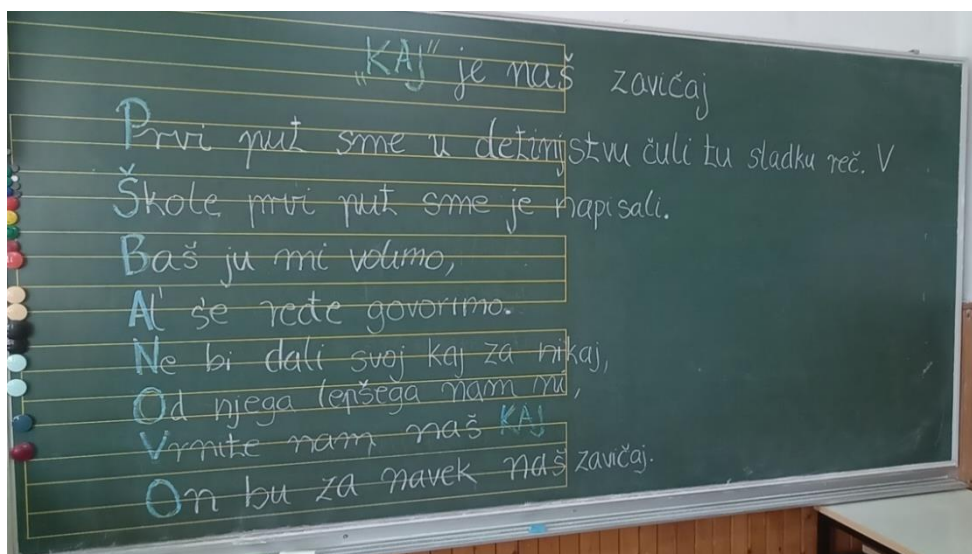 „KAJ“ je naš zavičaj
Prvi put sme u detinjstvu čuli tu sladku reč. V
Škole prvi put sme je napisali.
Baš ju mi volimo,
Al' se ređe govorimo.
Ne bi dali svoj kaj za nikaj,
Od njega lepšega nam ni,
Vrnite nam naš KAJ
On bu za navek naš zavičaj.